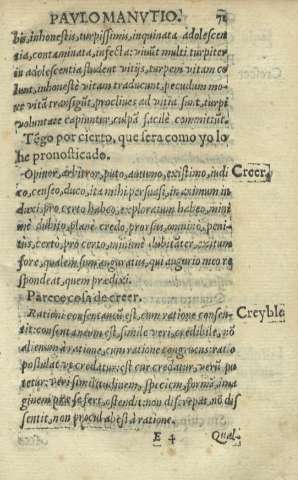 PAVLO MANVTIO. 72
bis, inhonestis, turpissimis, inquinata adolescen
tia, contaminata, infecta: viuūt multi turpiter
in adolescentia student vitijs, turpem vitam co
lunt, inhonestè vitam traducunt, pecudum mo-
re vitā transigūt, procliues ad vitia sunt, turpi
voluntate capiuntur, culpā facilè committūt.
Tēgo por cierto, que sera como yo lo
he pronosticado.
Opinor, arbitror, puto, autumo, existimo, iudi Creer.
co, censeo, duco, ita mihi persuasi, in animum in
duxi: pro certo habeo, exploratum habeo, mini
mè dubito, planè credo, prorsus, omnino, peni-
tus, certò, pro certo, minimè dubitāter, exitum
fore, qualem sum auguratus, qui augurio meo re
spondeat, quem prædixi.
Parece cosa de creer.
Rationi consentaneū est, cum ratione consen- Creyble
tit: consentaneum est, simile veri, credibile, nō
alienum à ratione, cum ratione congruens: ratio
postulat vt credatur: est cur credatur, verū pu
tetur, veri similitudinem, speciem, formā, ima
ginem præ se fert, ostendit: non discrepat, nō dis
sentit, non procul abest à ratione.
E 4 Qual-